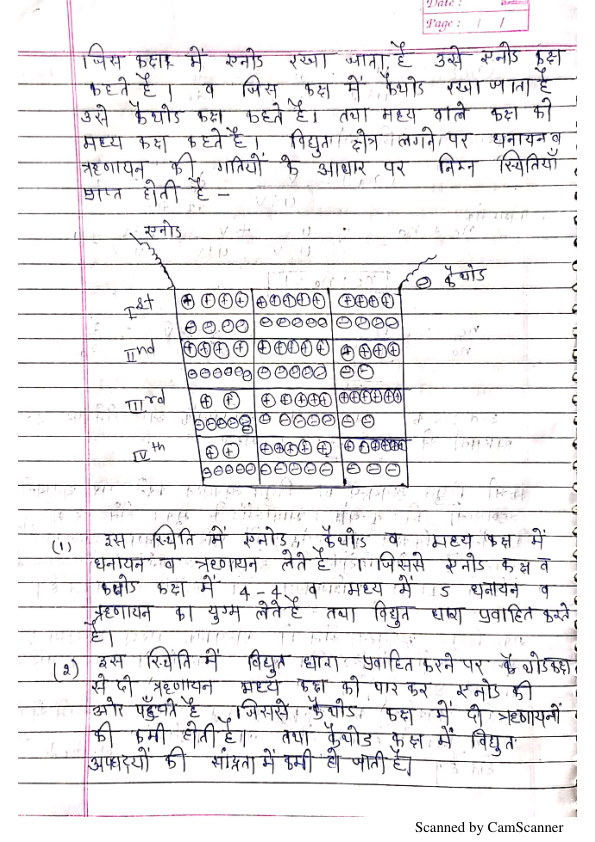 Date :
Page : / /
जिस कक्ष में एनोड रखा जाता है उसे एनोड कक्ष
कहते है। व जिस कक्ष में कैथोड रखा जाता है
उसे कैथोड कक्ष कहते है। तथा मध्य वाले कक्ष को
मध्य कक्ष कहते है। विद्युत क्षेत्र लगने पर धनायन व
ऋणायन की गतियों के आधार पर निम्न स्थितियाँ
प्राप्त होती है -
एनोड
⊖ कैथोड
Ist
⊕ ⊕ ⊕ ⊕ ⊕ ⊕ ⊕ ⊕ ⊕ ⊕ ⊕ ⊕ ⊕
⊖ ⊖ ⊖ ⊖ ⊖ ⊖ ⊖ ⊖ ⊖ ⊖ ⊖ ⊖ ⊖
IInd
⊕ ⊕ ⊕ ⊕ ⊕ ⊕ ⊕ ⊕ ⊕ ⊕ ⊕ ⊕ ⊕
⊖ ⊖ ⊖ ⊖ ⊖ ⊖ ⊖ ⊖ ⊖ ⊖ ⊖ ⊖ ⊖
IIIrd
IVth
(1) इस स्थिति में एनोड, कैथोड व मध्य कक्ष में
धनायन व ऋणायन लेते है । जिससे एनोड कक्ष व
कैथोड कक्ष में 4-4 व मध्य में 5 धनायन व
ऋणायन का युग्म लेते है तथा विद्युत धारा प्रवाहित करते
है।
(2) इस स्थिति में विद्युत धारा प्रवाहित करने पर कैथोड कक्ष
से दो ऋणायन मध्य कक्ष को पार कर एनोड की
ओर पहुँचते है जिससे कैथोड कक्ष में दो ऋणायनों
की कमी होती है। तथा कैथोड कक्ष में विद्युत
अपघट्यों की सांद्रता में कमी हो जाती है।
Scanned by CamScanner